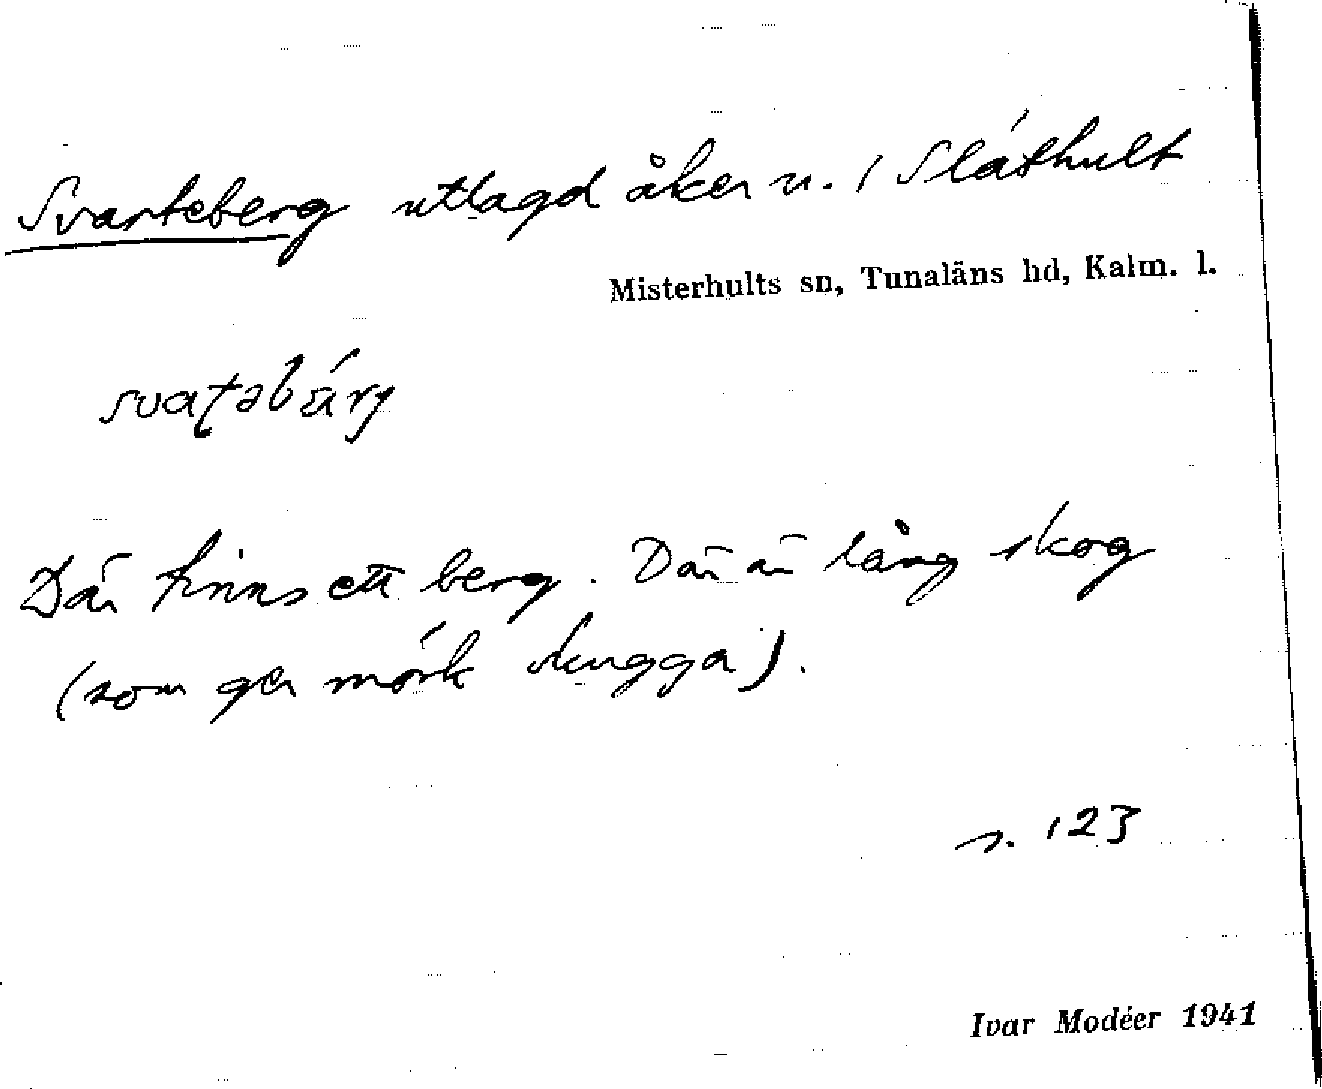 Svarteberg utlagd åker u. / Släthult
Misterhults sn, Tunaläns hd, Kalm. l.
svaʈəbärj
Där finns ett berg. Där är lång skog
(som ger mörk skugga).
s. 123
Ivar Modéer 1941